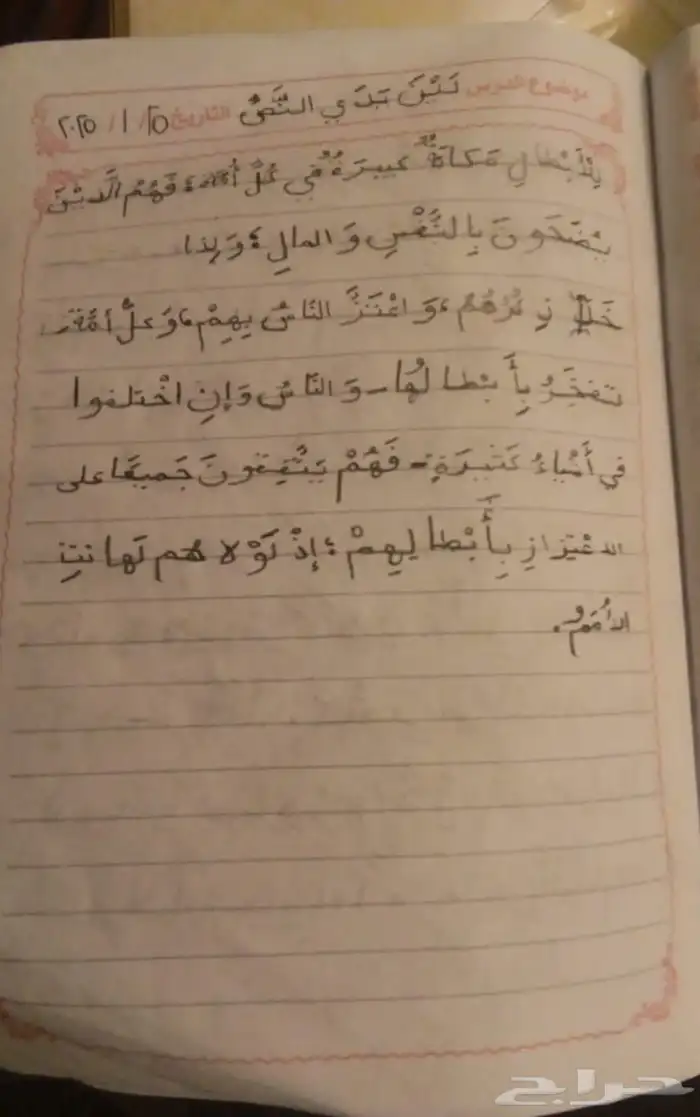 موضوع الدرس بَيْنَ يَدَيِ النَّصِّ التاريخ ٢٥/ ١/ ٢٠٢٥
لِلْأَبْطَالِ مَكَانَةٌ كَبِيرَةٌ فِي كُلِّ أُمَّةٍ، فَهُمُ الَّذِيْنَ
يُضَحُّونَ بِالنَّفْسِ وَ المالِ؛ وَ لِذا
خَلَّدَ ذِكْرُهُمْ، وَ اعْتَزَّ النَّاسُ بِهِمْ، وَ كلُّ أمَّةٍ
تفخَرُ بِأَبْطالِها - وَ النَّاسُ وَإِنِ اخْتلفوا
فِي أَشْياءَ كَثيرَةٍ - فَهُمْ يَتَّفِقونَ جَميعًا على
الاعْتِزازِ بِأَبْطالِهِمْ؛ إِذْ لَوْلا هُم لَهانَتِ
الأُمَمُ.
حراج